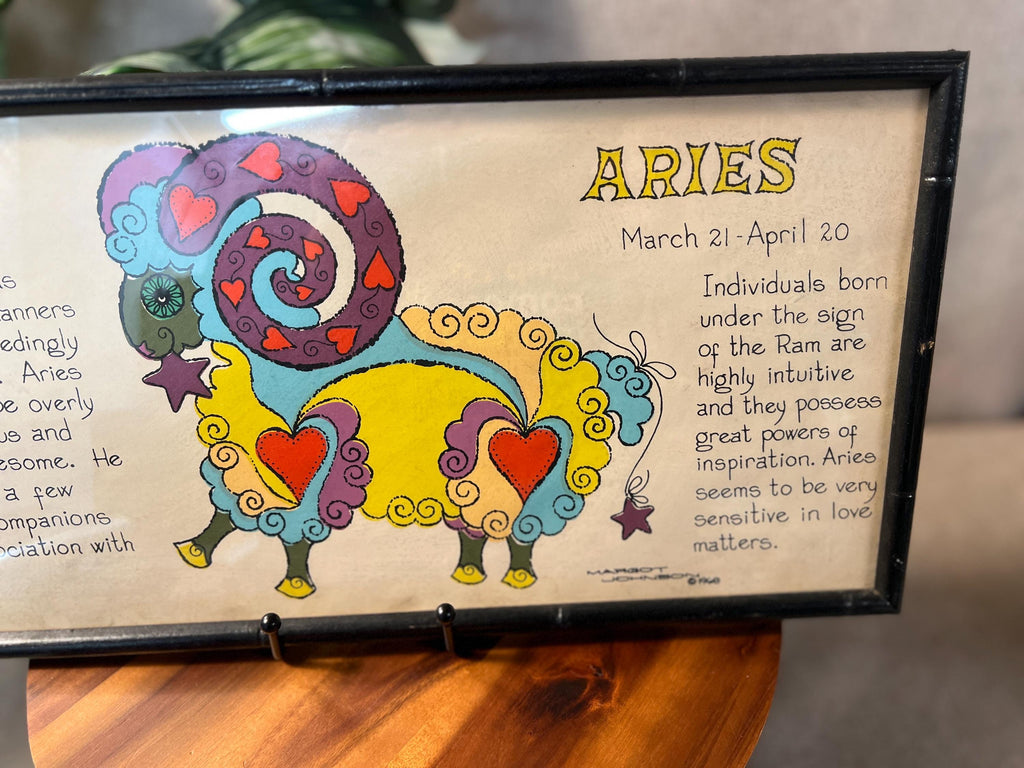 s
anners
edingly
. Aries
be overly
us and
esome. He
a few
ompanions
ociation with
ARIES
March 21 - April 20
Individuals born
under the sign
of the Ram are
highly intuitive
and they possess
great powers of
inspiration. Aries
seems to be very
sensitive in love
matters.
MARGOT
JOHNSON © 1968